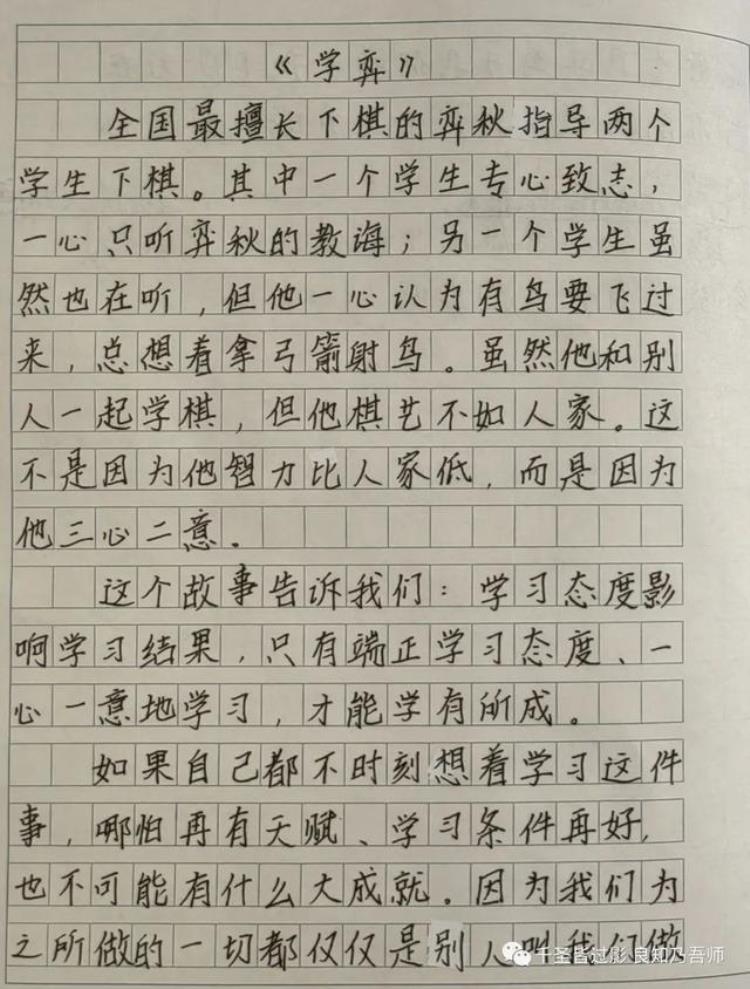 《学弈》
全国最擅长下棋的弈秋指导两个
学生下棋。其中一个学生专心致志，
一心只听弈秋的教诲；另一个学生虽
然也在听，但他一心认为有鸟要飞过
来，总想着拿弓箭射鸟。虽然他和别
人一起学棋，但他棋艺不如人家。这
不是因为他智力比人家低，而是因为
他三心二意。
这个故事告诉我们：学习态度影
响学习结果，只有端正学习态度、一
心一意地学习，才能学有所成。
如果自己都不时刻想着学习这件
事，哪怕再有天赋、学习条件再好，
也不可能有什么大成就。因为我们为
之所做的一切都仅仅是别人叫我们做
千圣皆过影 良知乃吾师